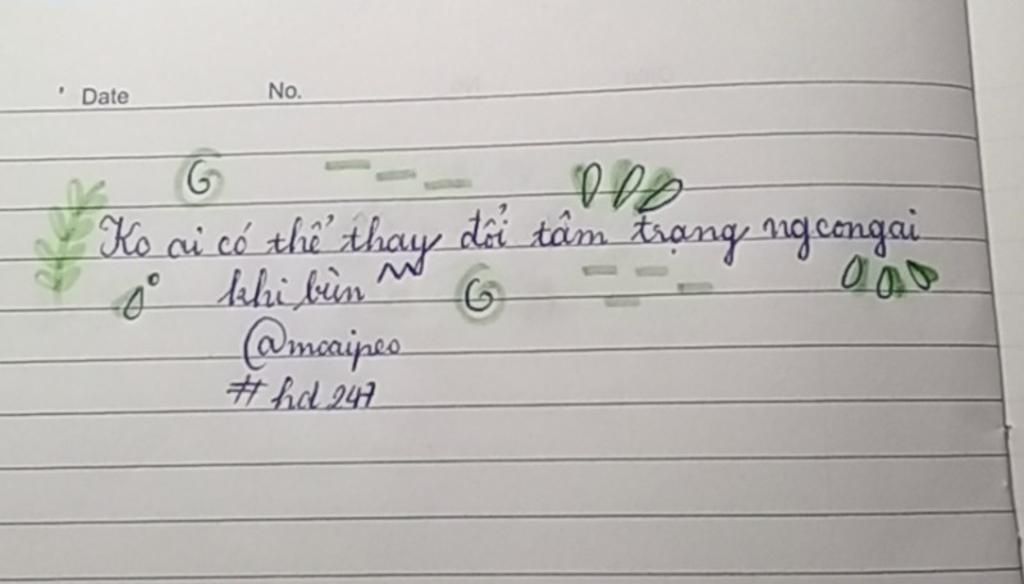 Date No.
Ko ai có thể thay đổi tâm trạng ng congai
khi bùn
@mcaipeo
#hd247